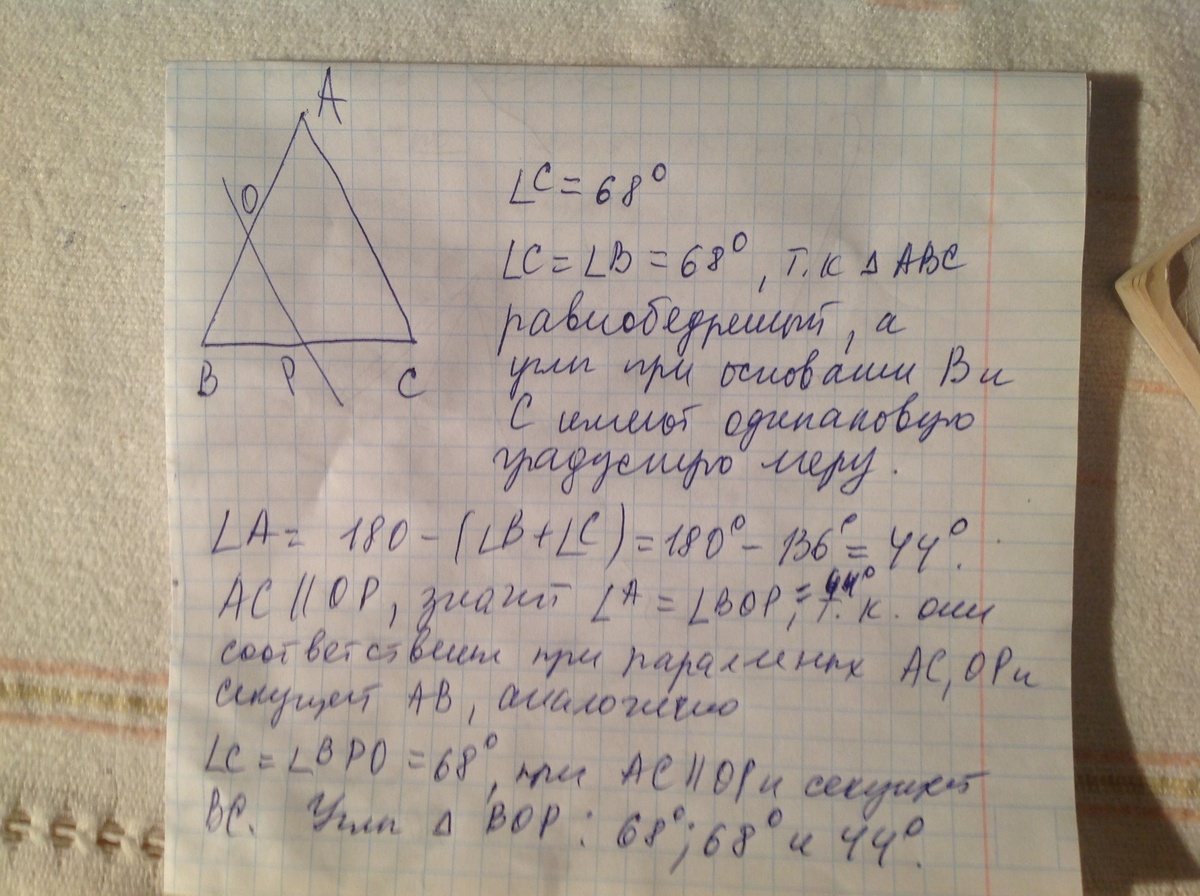 A
O
B P C
∠C = 68°
∠C = ∠B = 68°, т.к △ ABC
равнобедренный, а
углы при основании B и
C имеют одинаковую
градусную меру.
∠A = 180 - (∠B + ∠C) = 180° - 136° = 44°.
AC || OP, значит ∠A = ∠BOP, = 44° т.к. они
соответствены при паралельных AC, OP и
секущей AB, аналогично
∠C = ∠BPO = 68°, при AC || OP и секущей
BC. Углы △ BOP: 68°; 68° и 44°.